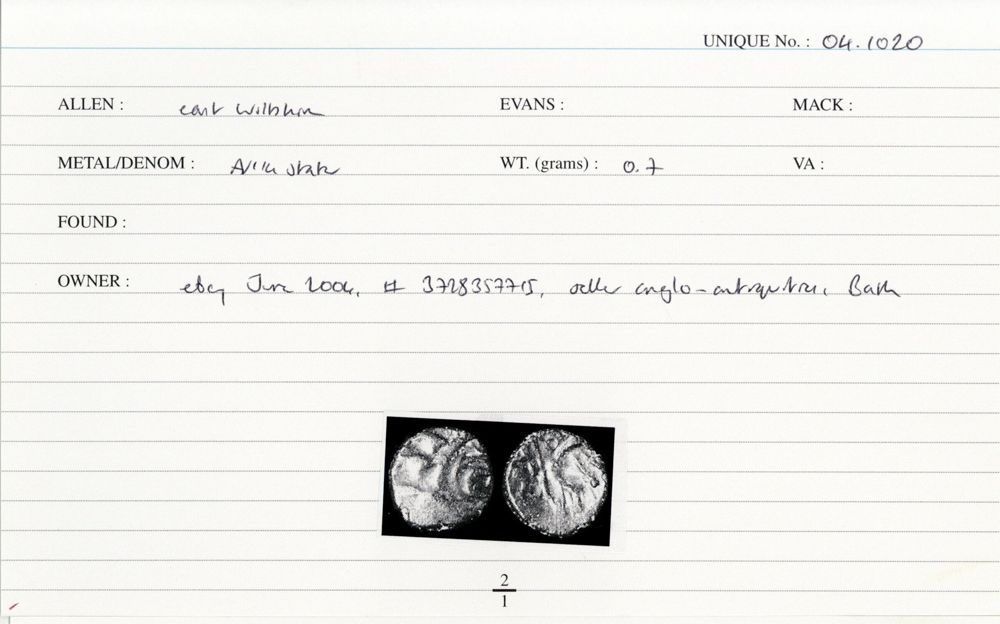 UNIQUE No. : 04.1020
ALLEN : east Wiltshire EVANS : MACK :
METAL/DENOM : WT. (grams) : 0.7 VA :
FOUND :
OWNER : ebay June 2004, # 3728357715, seller anglo-antiquities, Bath
2
1